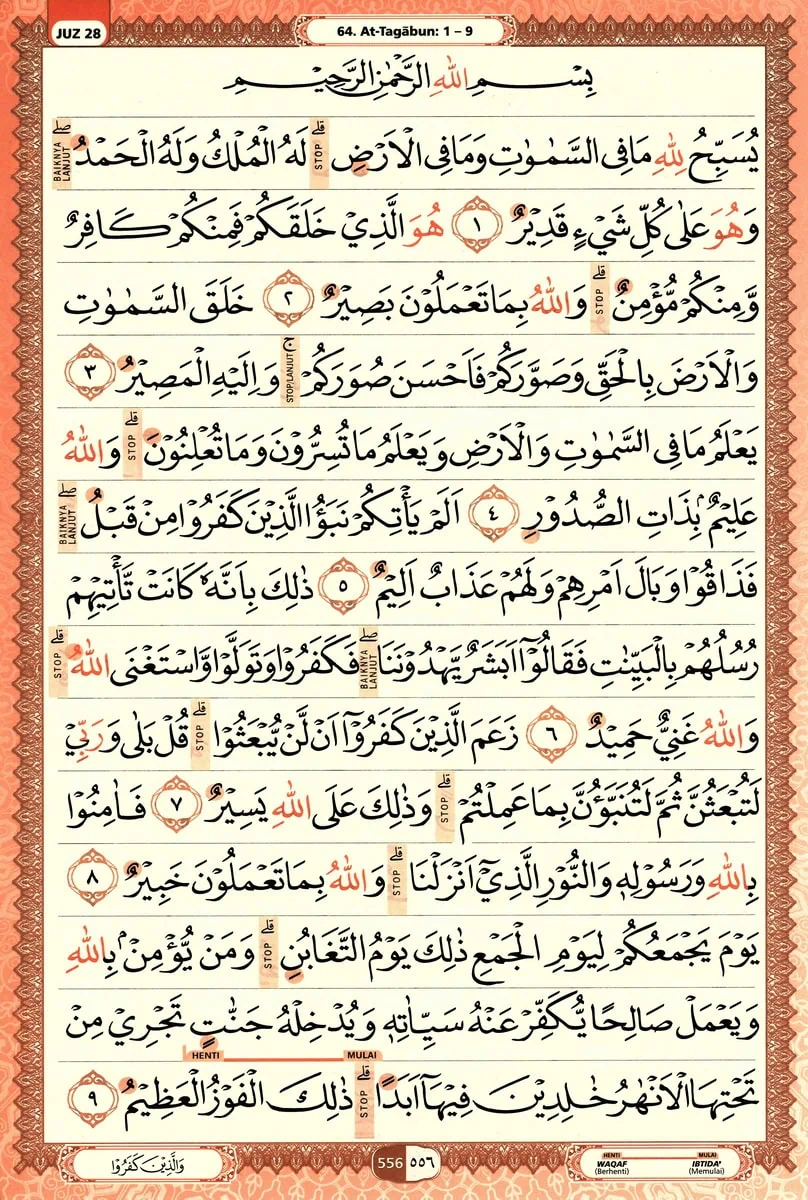 JUZ 28
64. At-Tagābun: 1 – 9
بِسْمِ اللّٰهِ الرَّحْمٰنِ الرَّحِيْمِ
يُسَبِّحُ لِلّٰهِ مَا فِى السَّمٰوٰتِ وَمَا فِى الْاَرْضِۗ STOP لَهُ الْمُلْكُ وَلَهُ الْحَمْدُۖ BAIKNYA LANJUT
وَهُوَ عَلٰى كُلِّ شَيْءٍ قَدِيْرٌ ١ هُوَ الَّذِيْ خَلَقَكُمْ فَمِنْكُمْ كَافِرٌ
وَّمِنْكُمْ مُّؤْمِنٌۗ STOP وَاللّٰهُ بِمَا تَعْمَلُوْنَ بَصِيْرٌ ٢ خَلَقَ السَّمٰوٰتِ
وَالْاَرْضَ بِالْحَقِّ وَصَوَّرَكُمْ فَاَحْسَنَ صُوَرَكُمْۚ STOP/LANJUT وَاِلَيْهِ الْمَصِيْرُ ٣
يَعْلَمُ مَا فِى السَّمٰوٰتِ وَالْاَرْضِ وَيَعْلَمُ مَا تُسِرُّوْنَ وَمَا تُعْلِنُوْنَۗ STOP وَاللّٰهُ
عَلِيْمٌ ۢبِذَاتِ الصُّدُوْرِ ٤ اَلَمْ يَأْتِكُمْ نَبَؤُا الَّذِيْنَ كَفَرُوْا مِنْ قَبْلُۖ BAIKNYA LANJUT
فَذَاقُوْا وَبَالَ اَمْرِهِمْ وَلَهُمْ عَذَابٌ اَلِيْمٌ ٥ ذٰلِكَ بِاَنَّهٗ كَانَتْ تَّأْتِيْهِمْ
رُسُلُهُمْ بِالْبَيِّنٰتِ فَقَالُوْٓا اَبَشَرٌ يَّهْدُوْنَنَاۖ BAIKNYA LANJUT فَكَفَرُوْا وَتَوَلَّوْا وَّاسْتَغْنَى اللّٰهُۗ STOP
وَاللّٰهُ غَنِيٌّ حَمِيْدٌ ٦ زَعَمَ الَّذِيْنَ كَفَرُوْٓا اَنْ لَّنْ يُّبْعَثُوْاۗ STOP قُلْ بَلٰى وَرَبِّيْ
لَتُبْعَثُنَّ ثُمَّ لَتُنَبَّؤُنَّ بِمَا عَمِلْتُمْۗ STOP وَذٰلِكَ عَلَى اللّٰهِ يَسِيْرٌ ٧ فَاٰمِنُوْا
بِاللّٰهِ وَرَسُوْلِهٖ وَالنُّوْرِ الَّذِيْٓ اَنْزَلْنَاۗ STOP وَاللّٰهُ بِمَا تَعْمَلُوْنَ خَبِيْرٌ ٨
يَوْمَ يَجْمَعُكُمْ لِيَوْمِ الْجَمْعِ ذٰلِكَ يَوْمُ التَّغَابُنِۗ STOP وَمَنْ يُّؤْمِنْ ۢبِاللّٰهِ
وَيَعْمَلْ صَالِحًا يُّكَفِّرْ عَنْهُ سَيِّاٰتِهٖ وَيُدْخِلْهُ جَنّٰتٍ تَجْرِيْ مِنْ
HENTI MULAI
تَحْتِهَا الْاَنْهٰرُ خٰلِدِيْنَ فِيْهَآ اَبَدًاۗ STOP ذٰلِكَ الْفَوْزُ الْعَظِيْمُ ٩
وَالَّذِيْنَ كَفَرُوْا
556 ٥٥٦
HENTI MULAI
WAQAF (Berhenti) IBTIDA' (Memulai)